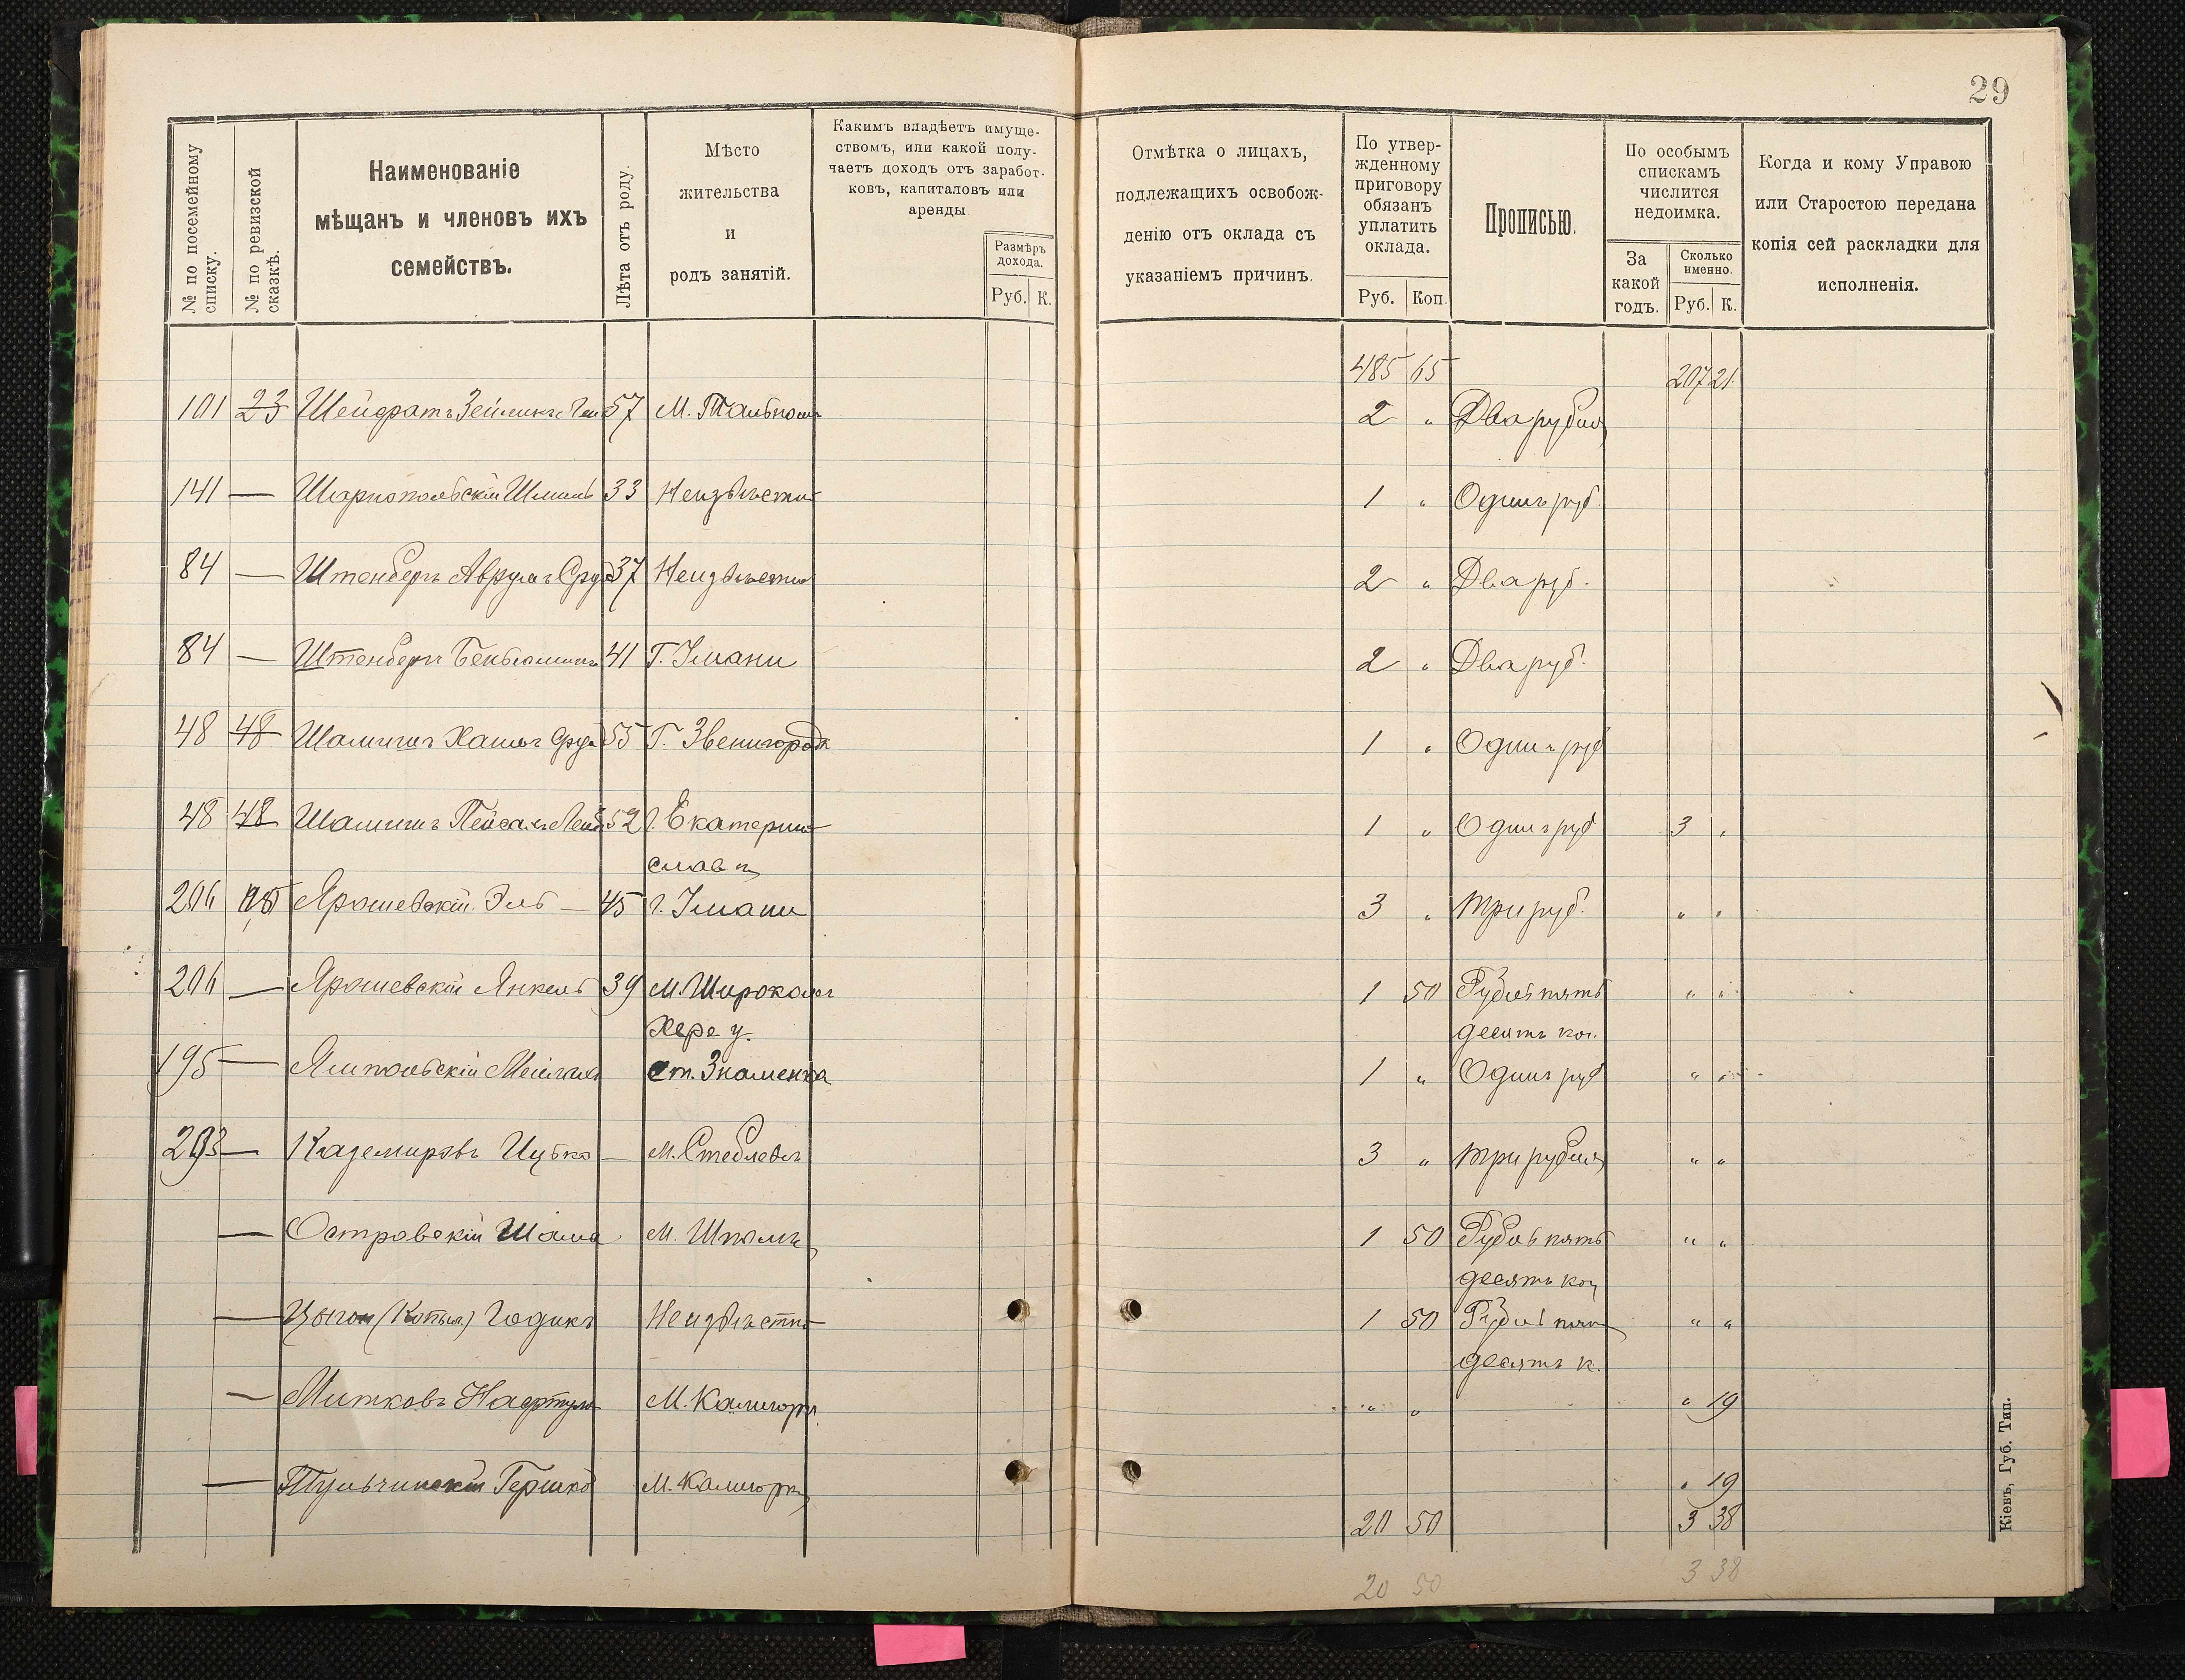 29
№ по посемейному списку.
№ по ревизской сказкѣ.
Наименованіе
мѣщанъ и членовъ ихъ
семействъ.
Лѣта отъ роду.
Мѣсто
жительства
и
родъ занятій.
Какимъ владѣетъ имуще-
ствомъ, или какой полу-
чаетъ доходъ отъ заработ-
ковъ, капиталовъ или
аренды
Размѣръ
дохода.
Руб. К.
Отмѣтка о лицахъ,
подлежащихъ освобож-
денію отъ оклада съ
указаніемъ причинъ.
По утвер-
жденному
приговору
обязанъ
уплатить
оклада.
Руб. Коп.
Прописью.
По особымъ
спискамъ
числится
недоимка.
За
какой
годъ.
Сколько
именно.
Руб. К.
Когда и кому Управою
или Старостою передана
копія сей раскладки для
исполненія.
485 65 207 21
101 23 Шейфратъ 57 2 " Два рубля
141 — Шарнопольскій Шмиль 33 Неизвѣстно 1 " Одинъ руб.
84 — Штенбергъ Аврумъ Сруль 37 Неизвѣстно 2 " Два руб.
84 — Штенбергъ Беньюминъ 41 Г. Умани 2 " Два руб.
48 48 55 Г. Звенигородк 1 " Одинъ руб
48 48 52 г. Екатерино 1 " Одинъ руб 3 "
слав
45 г. Умани 3 " Три руб. " "
Ярошевскій Янкель 39 М. Широкомъ 1 50 Рубль пять " "
Херс у. десять коп.
195 — Ямпольскій ст. Знаменка 1 " Одинъ руб " "
203 — Каземировъ Ицько — М. Стеблевъ 3 " Три рубля " "
— Островскій Шама М. Шполѣ 1 50 Рубль пять " "
десять коп
— Неизвѣстно 1 50 Рубль пять " "
десять к.
— Митковъ Нафтула М. Калигорк. " " " 19
— Тульчинскій Гершко М. Калигорк " 19
20 50 3 38
20 50 3 38
Кіевъ, Губ. Тип.